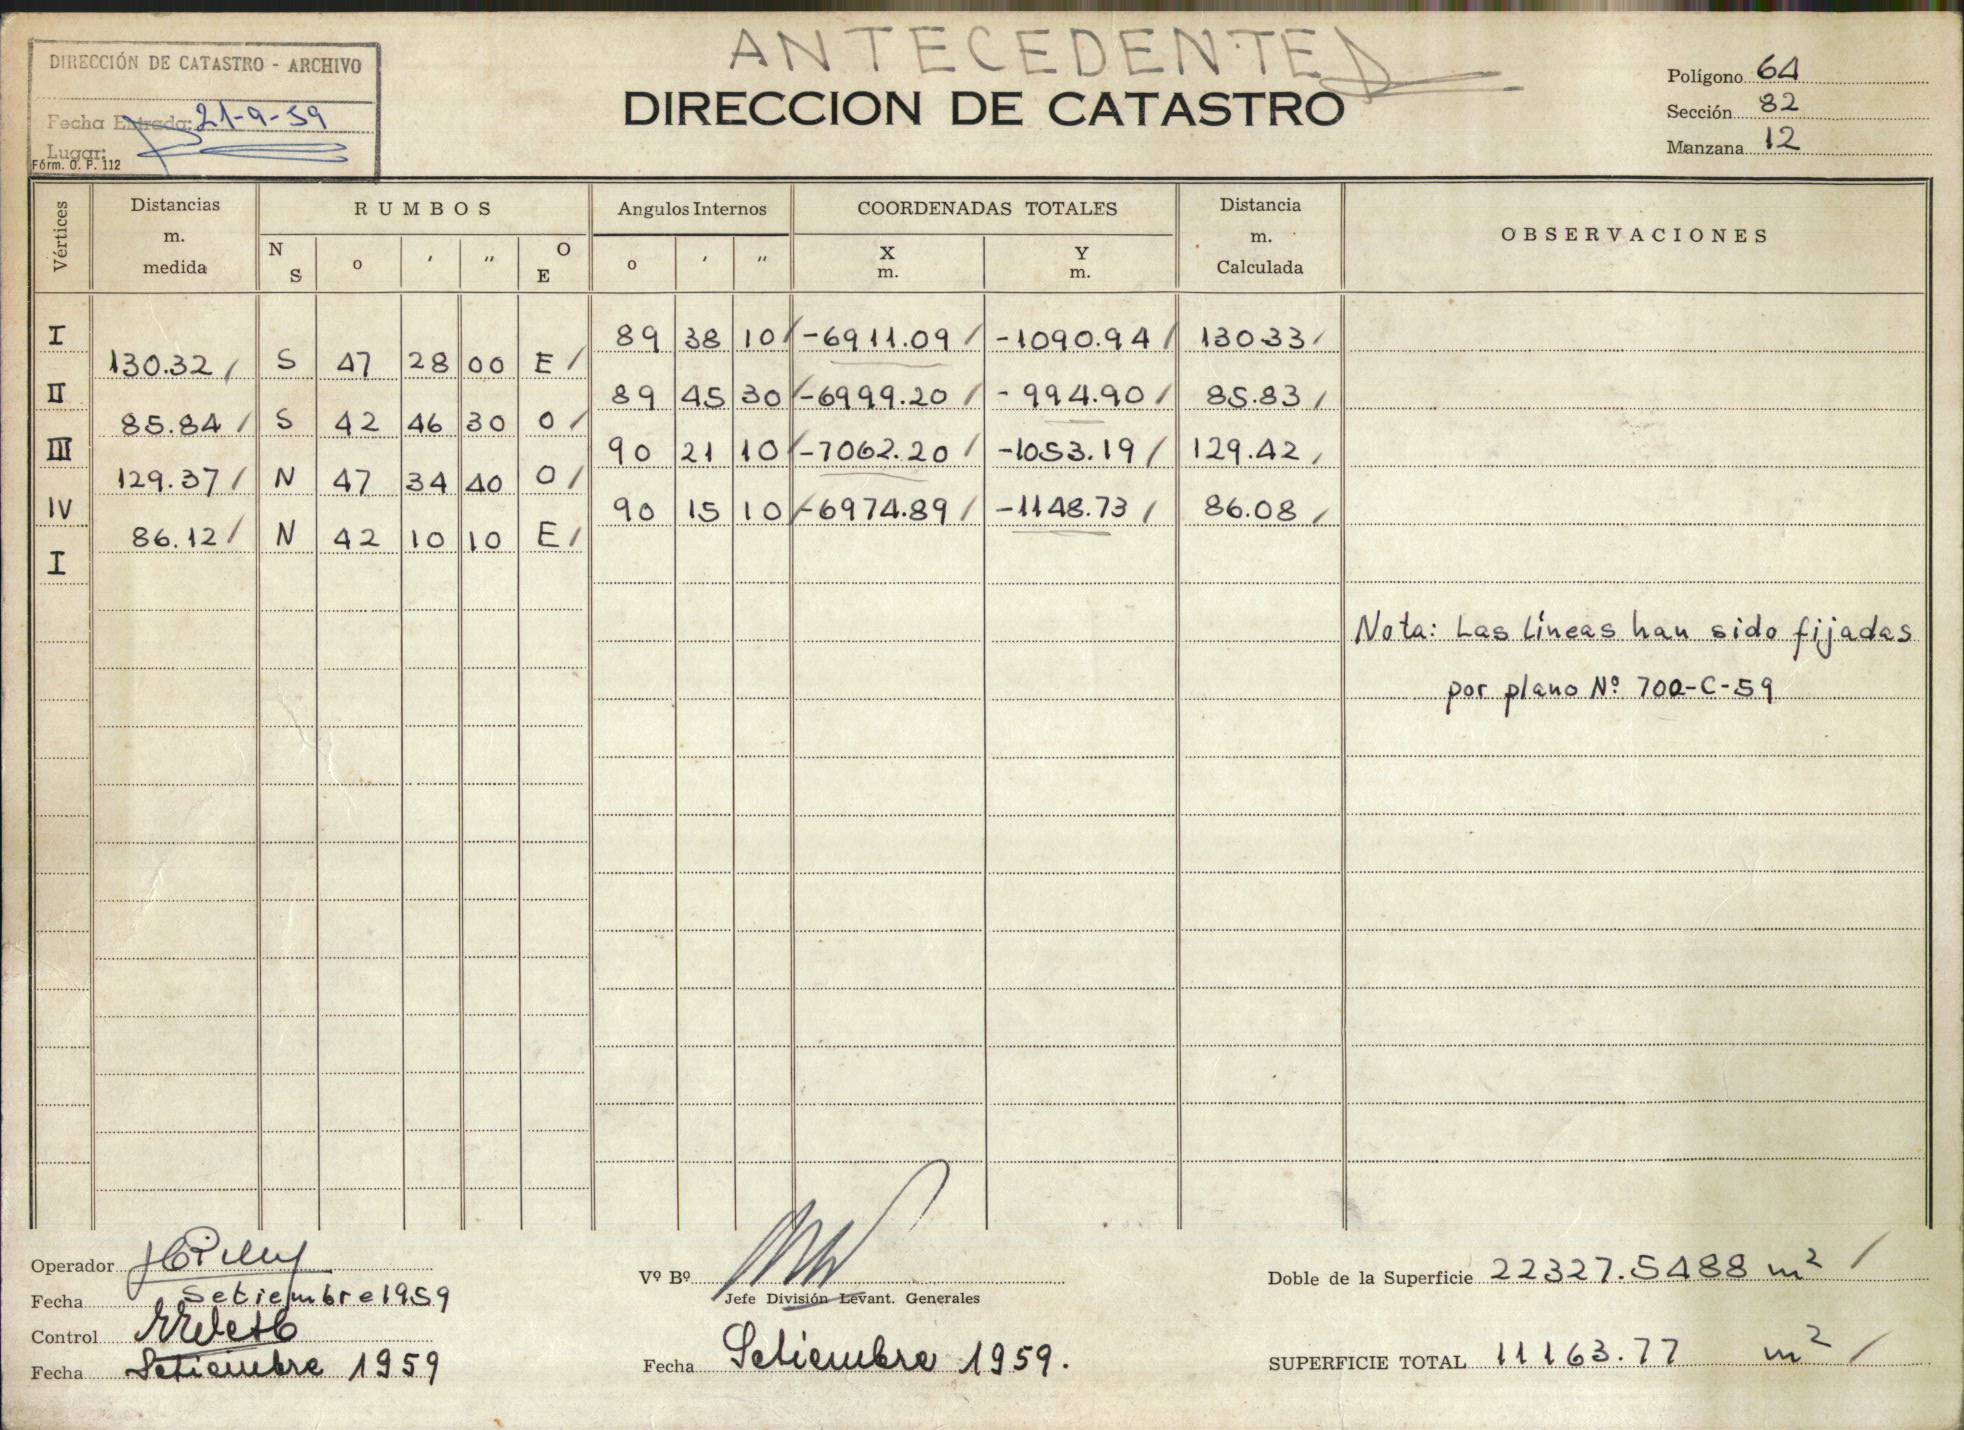 ANTECEDENTE
DIRECCIÓN DE CATASTRO - ARCHIVO
Fecha Entrada: 21-9-59
Lugar:
Fórm. O. P. 112
DIRECCION DE CATASTRO
Polígono 64
Sección 82
Manzana 12
Vértices
Distancias m. medida
RUMBOS
N S o ′ ″ O E
Angulos Internos
o ′ ″
COORDENADAS TOTALES
X m. Y m.
Distancia m. Calculada
OBSERVACIONES
I 89 38 10 -6911.09 -1090.94 130.33
130.32 S 47 28 00 E
II 89 45 30 -6999.20 -994.90 85.83
85.84 S 42 46 30 O
III 90 21 10 -7062.20 -1053.19 129.42
129.37 N 47 34 40 O
IV 90 15 10 -6974.89 -1148.73 86.08
86.12 N 42 10 10 E
I
Nota: Las líneas han sido fijadas
por plano Nº 700-C-59
Operador
Fecha Setiembre 1959
Control
Fecha Setiembre 1959
Vº Bº
Jefe División Levant. Generales
Fecha Setiembre 1959.
Doble de la Superficie 22327.5488 m²
SUPERFICIE TOTAL 11163.77 m²